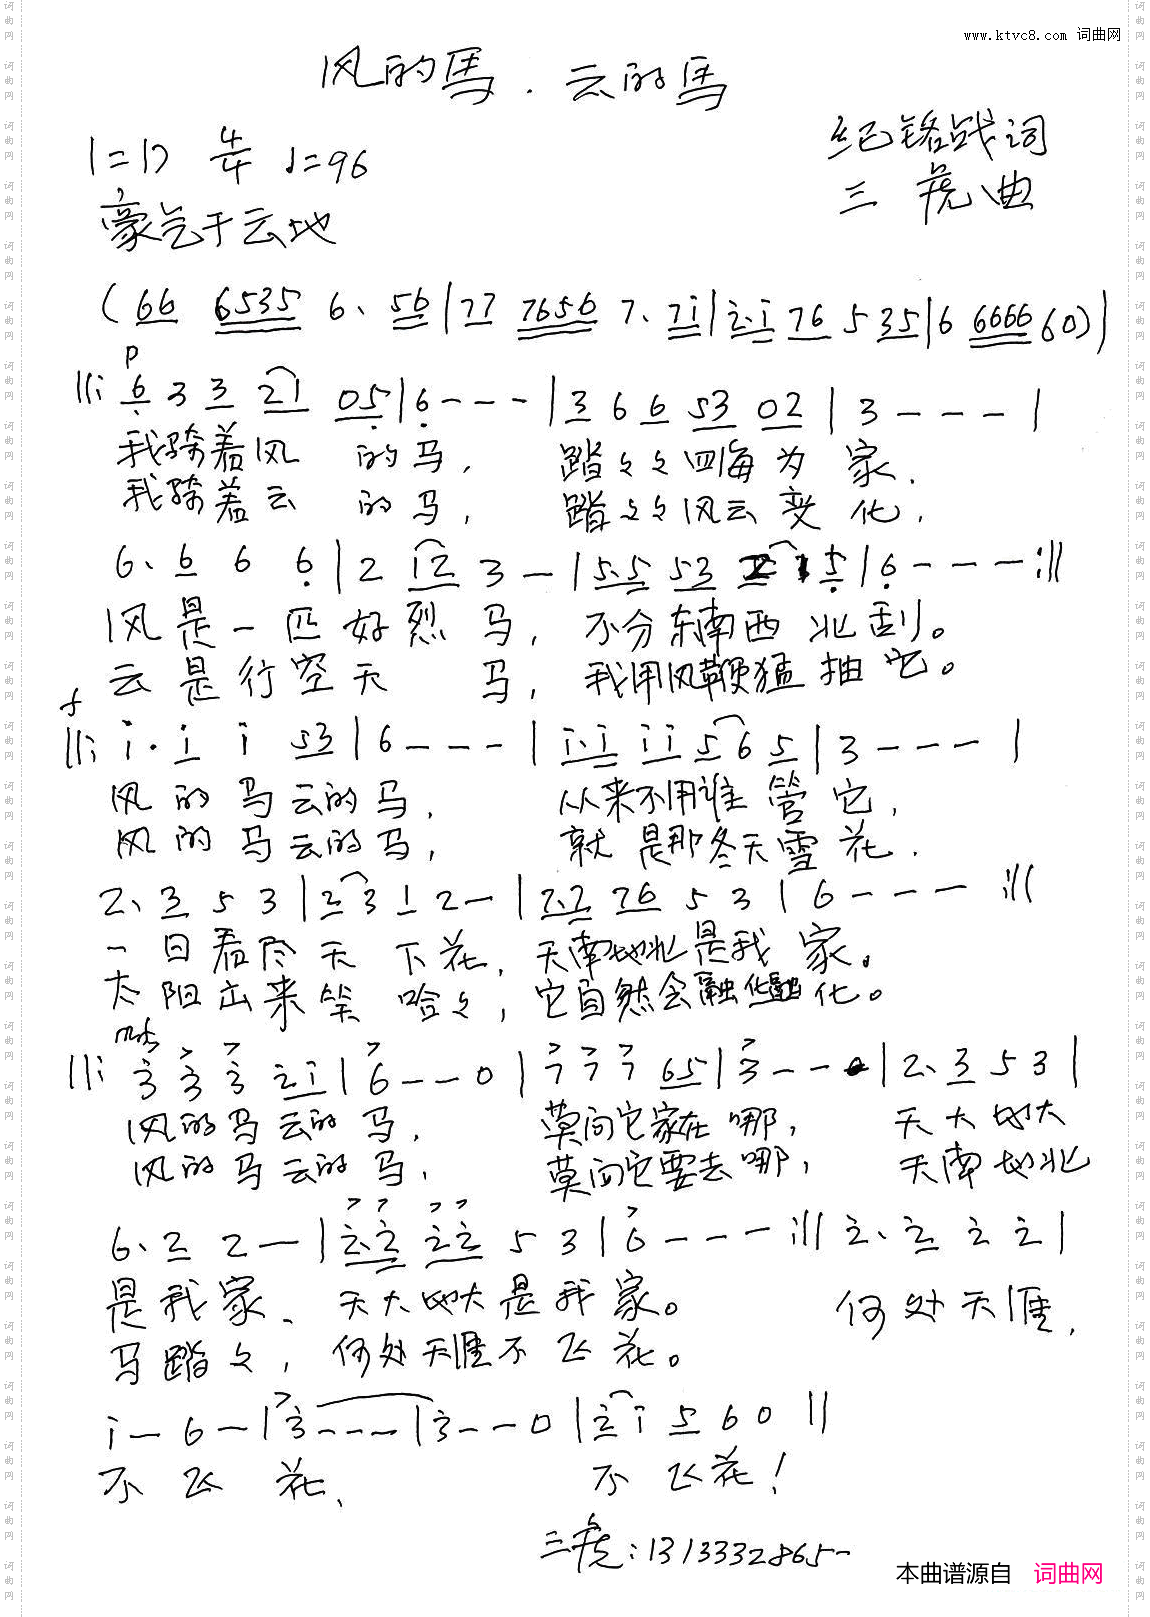 www.ktvc8.com 词曲网
风的馬.云的馬
纪铭战词
1=D 4/4 ♩=96
三虎曲
豪气于云地
(66 6535 6. 56|77 7656 7. 7i|i.i 76 5 35|6 6666 60)|
p
||: 6 3 3 21 05|6---|3 6 6 53 02|3---|
我骑着风 的马, 踏々々四海为家.
我骑着云 的马, 踏々々风云变化.
6. 6 6 6|2 12 3-|5.5 53 2 1 5|6---:||
风是一匹好烈马, 不分东南西北刮。
云是行空天马, 我用风鞭猛抽它。
f
||: i. i i 53|6---|i.i ii 5 6 5|3---|
风的马云的马, 从来不用谁管它,
风的马云的马, 就是那冬天雪花.
2. 3 5 3|2 3 1 2-|2.2 76 5 3|6---:||
一日看尽天下花, 天南地北是我家。
太阳出来笑哈々, 它自然会融化融化。
||: 3 3 3 2i|6--0|7 7 7 65|3---|2. 3 5 3|
风的马云的马, 莫问它家在哪, 天大地大
风的马云的马, 莫问它要去哪, 天南地北
6. 2 2-|2.2 22 5 3|6---:|| 2. 2 2 2|
是我家、天大地大是我家。 何处天涯,
马踏々, 何处天涯不飞花。
i-6-|3----|3--0|2 i 5 60||
不飞花、 不飞花!
三虎:1313332865-
本曲谱源自 词曲网